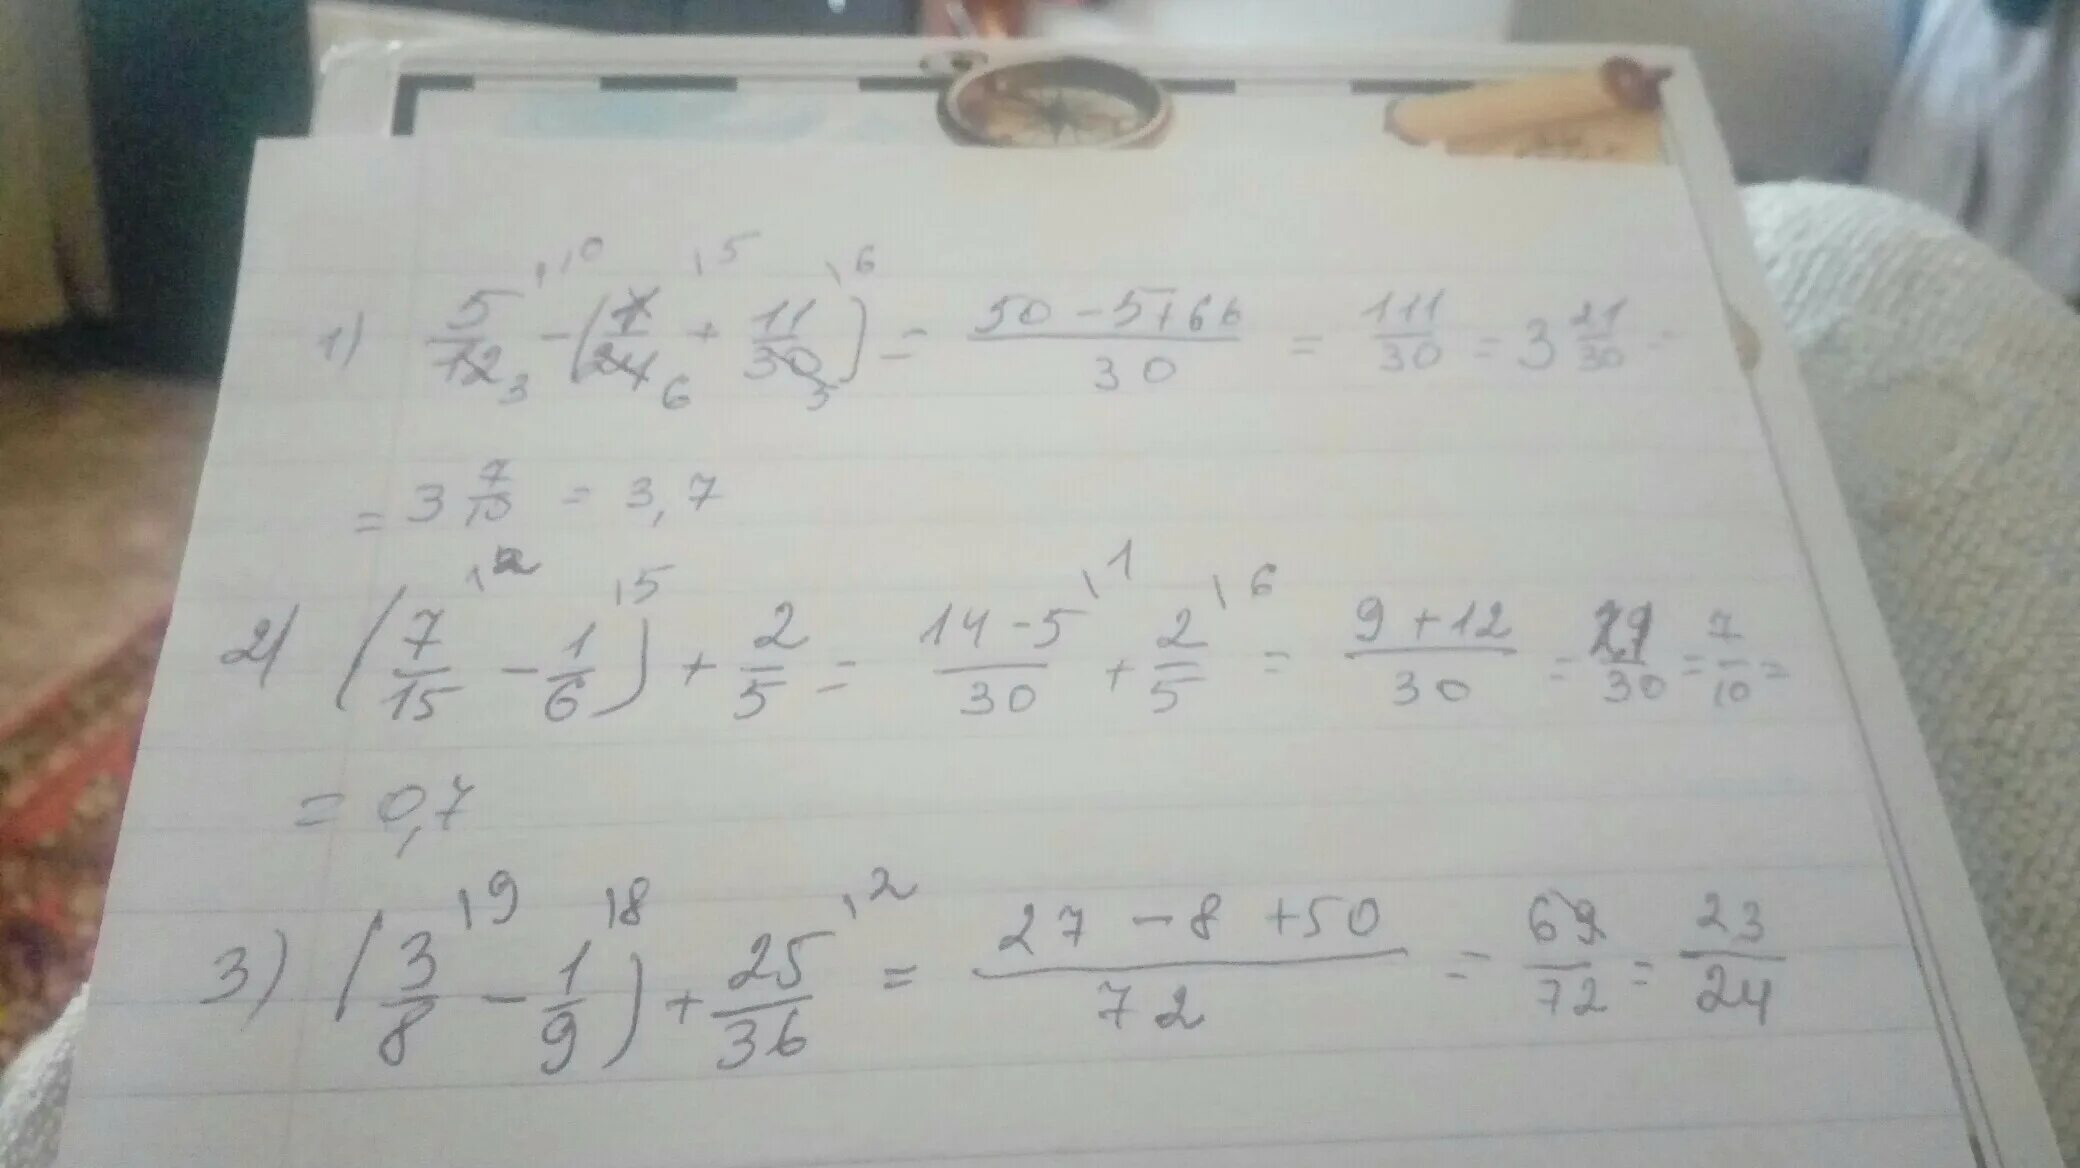 1) 5/12 3 \10 - (1/24 6 \5 + 11/30 5 \6) = (50 - 5 + 66)/30 = 111/30 = 3 21/30 =
= 3 7/10 = 3,7
2) (7/15 \2 - 1/6 \5) + 2/5 = (14 - 5)/30 \1 + 2/5 \6 = (9 + 12)/30 = 21/30 = 7/10 =
= 0,7
3) (3/8 \9 - 1/9 \8) + 25/36 \2 = (27 - 8 + 50)/72 = 69/72 = 23/24